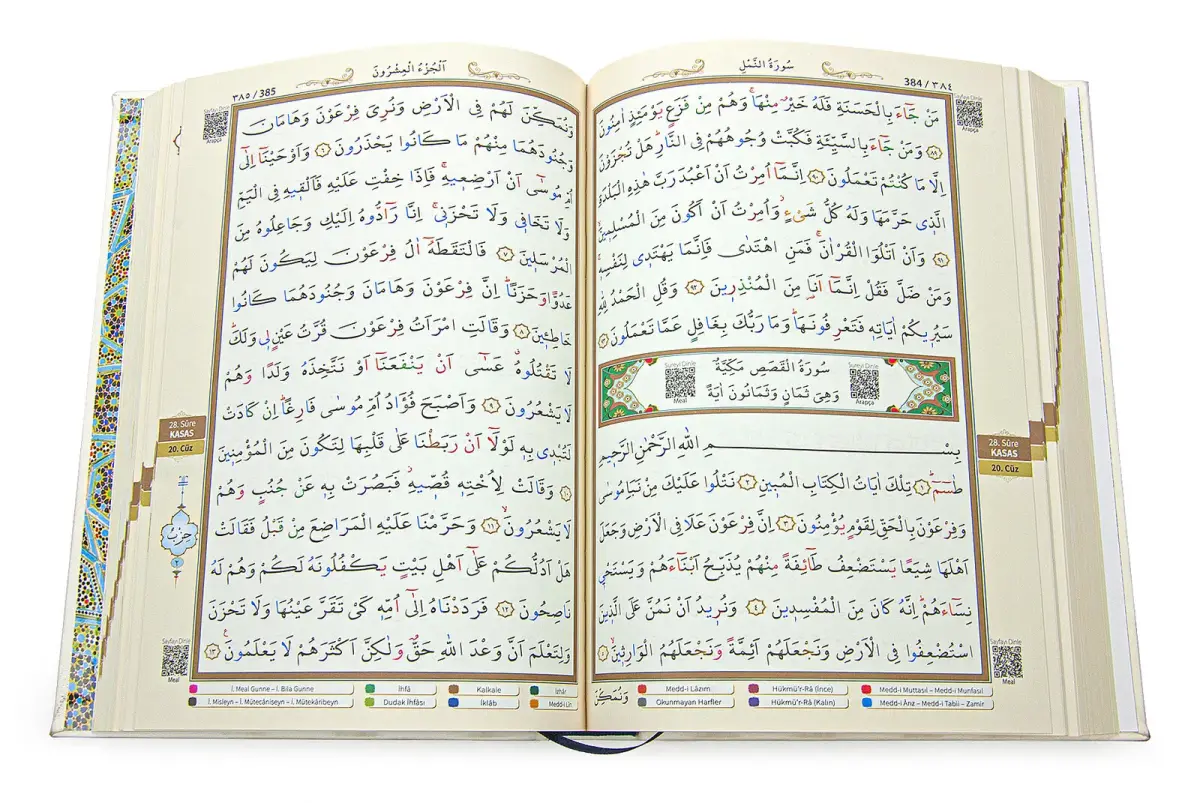 سُورَةُ النَّمْلِ
384 / ٣٨٤
Sayfayı Dinle
Arapça
مَنْ جَٓاءَ بِالْحَسَنَةِ فَلَهُ خَيْرٌ مِنْهَاۚ وَهُمْ مِنْ فَزَعٍ يَوْمَئِذٍ اٰمِنُونَ
﴿٨٩﴾ وَمَنْ جَٓاءَ بِالسَّيِّئَةِ فَكُبَّتْ وُجُوهُهُمْ فِي النَّارِۜ هَلْ تُجْزَوْنَ
اِلَّا مَا كُنْتُمْ تَعْمَلُونَ ﴿٩٠﴾ اِنَّمَٓا اُمِرْتُ اَنْ اَعْبُدَ رَبَّ هٰذِهِ الْبَلْدَةِ
الَّذ۪ي حَرَّمَهَا وَلَهُ كُلُّ شَيْءٍۘ وَاُمِرْتُ اَنْ اَكُونَ مِنَ الْمُسْلِم۪ينَۙ
﴿٩١﴾ وَاَنْ اَتْلُوَا الْقُرْاٰنَۚ فَمَنِ اهْتَدٰى فَاِنَّمَا يَهْتَد۪ي لِنَفْسِه۪ۚ
وَمَنْ ضَلَّ فَقُلْ اِنَّمَٓا اَنَا۬ مِنَ الْمُنْذِر۪ينَ ﴿٩٢﴾ وَقُلِ الْحَمْدُ لِلّٰهِ
سَيُر۪يكُمْ اٰيَاتِه۪ فَتَعْرِفُونَهَاۜ وَمَا رَبُّكَ بِغَافِلٍ عَمَّا تَعْمَلُونَ ﴿٩٣﴾
Sureyi Dinle
Meal
سُورَةُ الْقَصَصِ مَكِّيَّةٌ
وَهِيَ ثَمَانٍ وَثَمَانُونَ اٰيَةً
Sureyi Dinle
Arapça
بِسْمِ اللّٰهِ الرَّحْمٰنِ الرَّح۪يمِ
طٰسٓمٓ ﴿١﴾ تِلْكَ اٰيَاتُ الْكِتَابِ الْمُب۪ينِ ﴿٢﴾ نَتْلُوا عَلَيْكَ مِنْ نَبَأِ مُوسٰى
وَفِرْعَوْنَ بِالْحَقِّ لِقَوْمٍ يُؤْمِنُونَ ﴿٣﴾ اِنَّ فِرْعَوْنَ عَلَا فِي الْاَرْضِ وَجَعَلَ
اَهْلَهَا شِيَعًا يَسْتَضْعِفُ طَٓائِفَةً مِنْهُمْ يُذَبِّحُ اَبْنَٓاءَهُمْ وَيَسْتَحْي۪
نِسَٓاءَهُمْۜ اِنَّهُ كَانَ مِنَ الْمُفْسِد۪ينَ ﴿٤﴾ وَنُر۪يدُ اَنْ نَمُنَّ عَلَى الَّذ۪ينَ
اسْتُضْعِفُوا فِي الْاَرْضِ وَنَجْعَلَهُمْ اَئِمَّةً وَنَجْعَلَهُمُ الْوَارِث۪ينَۙ ﴿٥﴾
وَنُمَكِّنَ
28. Sûre
KASAS
20. Cüz
Sayfayı Dinle
Meal
Medd-i Lâzım
Hükmü'r-Râ (İnce)
Medd-i Muttasıl – Medd-i Munfasıl
Okunmayan Harfler
Hükmü'r-Râ (Kalın)
Medd-i Ârız – Medd-i Tabii – Zamir
اَلْجُزْءُ الْعِشْرُونَ
٣٨٥ / 385
Sayfayı Dinle
Arapça
وَنُمَكِّنَ لَهُمْ فِي الْاَرْضِ وَنُرِيَ فِرْعَوْنَ وَهَامَانَ
وَجُنُودَهُمَا مِنْهُمْ مَا كَانُوا يَحْذَرُونَ ﴿٦﴾ وَاَوْحَيْنَٓا اِلٰٓى
اُمِّ مُوسٰٓى اَنْ اَرْضِع۪يهِۚ فَاِذَا خِفْتِ عَلَيْهِ فَاَلْق۪يهِ فِي الْيَمِّ
وَلَا تَخَاف۪ي وَلَا تَحْزَن۪يۚ اِنَّا رَٓادُّوهُ اِلَيْكِ وَجَاعِلُوهُ مِنَ
الْمُرْسَل۪ينَ ﴿٧﴾ فَالْتَقَطَهُٓ اٰلُ فِرْعَوْنَ لِيَكُونَ لَهُمْ
عَدُوًّا وَحَزَنًاۜ اِنَّ فِرْعَوْنَ وَهَامَانَ وَجُنُودَهُمَا كَانُوا
خَاطِـ۪ٔينَ ﴿٨﴾ وَقَالَتِ امْرَاَتُ فِرْعَوْنَ قُرَّتُ عَيْنٍ ل۪ي وَلَكَۜ
لَا تَقْتُلُوهُۗ عَسٰٓى اَنْ يَنْفَعَنَٓا اَوْ نَتَّخِذَهُ وَلَدًا وَهُمْ
لَا يَشْعُرُونَ ﴿٩﴾ وَاَصْبَحَ فُؤٰادُ اُمِّ مُوسٰى فَارِغًاۜ اِنْ كَادَتْ
لَتُبْد۪ي بِه۪ لَوْلَٓا اَنْ رَبَطْنَا عَلٰى قَلْبِهَا لِتَكُونَ مِنَ الْمُؤْمِن۪ينَ
﴿١٠﴾ وَقَالَتْ لِاُخْتِه۪ قُصّ۪يهِۘ فَبَصُرَتْ بِه۪ عَنْ جُنُبٍ وَهُمْ
لَا يَشْعُرُونَۙ ﴿١١﴾ وَحَرَّمْنَا عَلَيْهِ الْمَرَاضِعَ مِنْ قَبْلُ فَقَالَتْ
هَلْ اَدُلُّكُمْ عَلٰٓى اَهْلِ بَيْتٍ يَكْفُلُونَهُ لَكُمْ وَهُمْ لَهُ
نَاصِحُونَ ﴿١٢﴾ فَرَدَدْنَاهُ اِلٰٓى اُمِّه۪ كَيْ تَقَرَّ عَيْنُهَا وَلَا تَحْزَنَ
وَلِتَعْلَمَ اَنَّ وَعْدَ اللّٰهِ حَقٌّ وَلٰكِنَّ اَكْثَرَهُمْ لَا يَعْلَمُونَ۟ ﴿١٣﴾
28. Sûre
KASAS
20. Cüz
حِزْبُ
٢
Sayfayı Dinle
Meal
İ. Meal Gunne – İ. Bila Gunne
İhfâ
Kalkale
İzhâr
İ. Misleyn – İ. Mütecâniseyn – İ. Mütekâribeyn
Dudak İhfâsı
İklâb
Medd-i Lîn